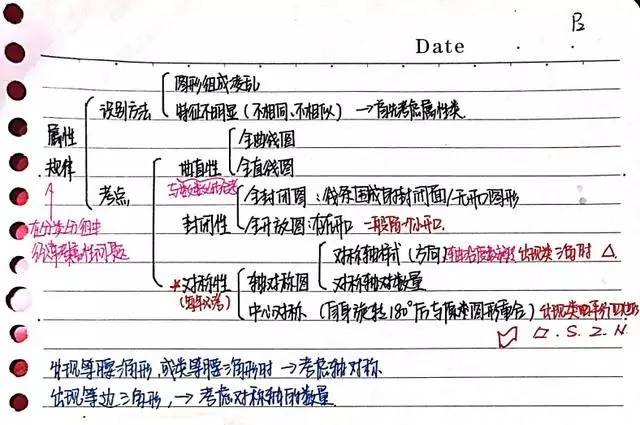 B
Date
图形组成凌乱
识别方法
特征不明显(不相同、不相似) → 首先考虑属性类
属性
规律
全曲线图
曲直性
全直线图
考点
全封闭图:线条围成的封闭面/无开口图形
封闭性
全开放图:有开口 一般留一个小开口.
在分类分组中
经常考属性问题
对称轴样式(方向) 出现类三角时 △
*对称性
轴对称图
对称轴对数量
(每年必考)
中心对称(自身旋转180°后与原来图形重合) 出现类平行四边形
▱.S.Z.N.
出现等腰三角形,或类等腰三角形时 → 考虑轴对称
出现等边三角形, → 考虑对称轴的数量